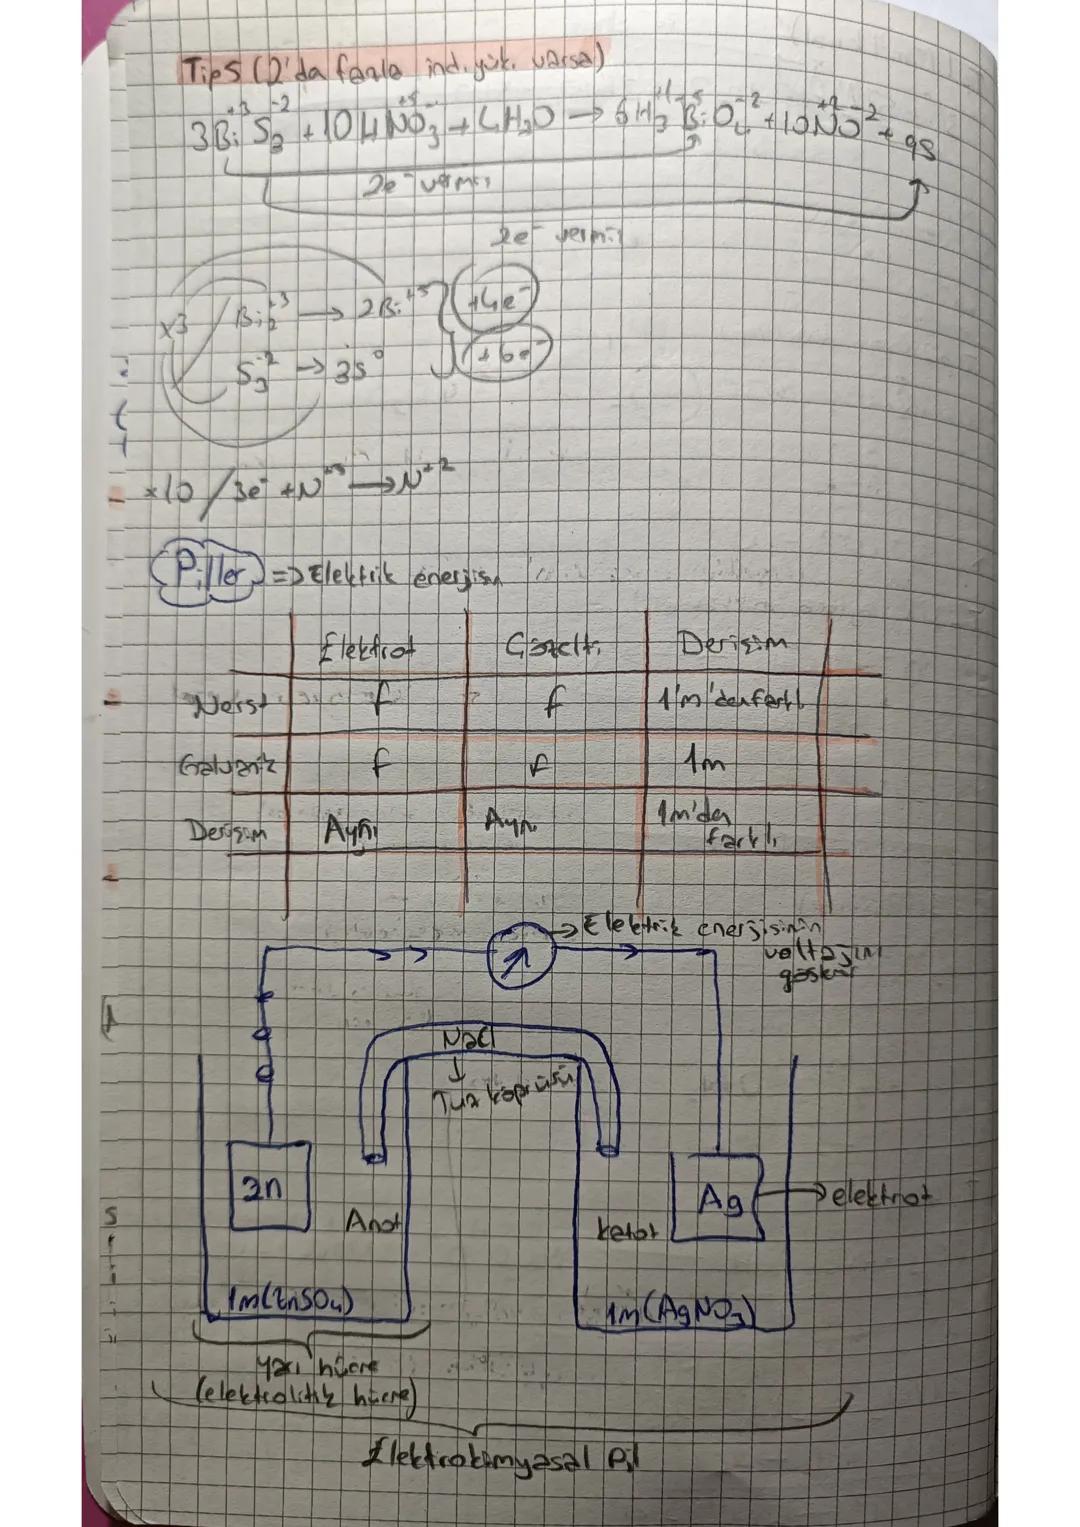 Tip5 (2'da fazla ind.yük. varsa)
+3 -2 +5 +1 +5 -2 +2 -2
3Bi₂S₃ + 10HNO₃ + 4H₂O → 6H₃BiO₄ + 10NO + 9S
2e⁻ vermiş
2e⁻ vermiş
x3 / Bi₂⁺³ → 2Bi⁺⁵ +4e⁻
S₃⁻² → 3S⁰ +6e⁻
x10 / 3e⁻ + N⁺⁵ → N⁺²
Piller => Elektrik enerjisi
Elektrot Çözelti Derişim
Nerst f f 1'm'den farklı
Galvanik f f 1m
Derişim Aynı Aynı 1m'den farklı
→ Elektrik enerjisinin
voltajını
gösterir
NaCl
↓
Tuz köprüsü
Zn Anot katot Ag → elektrot
1m(ZnSO₄) 1m(AgNO₃)
yarı hücre
(elektrolitik hücre)
Elektrokimyasal Pil